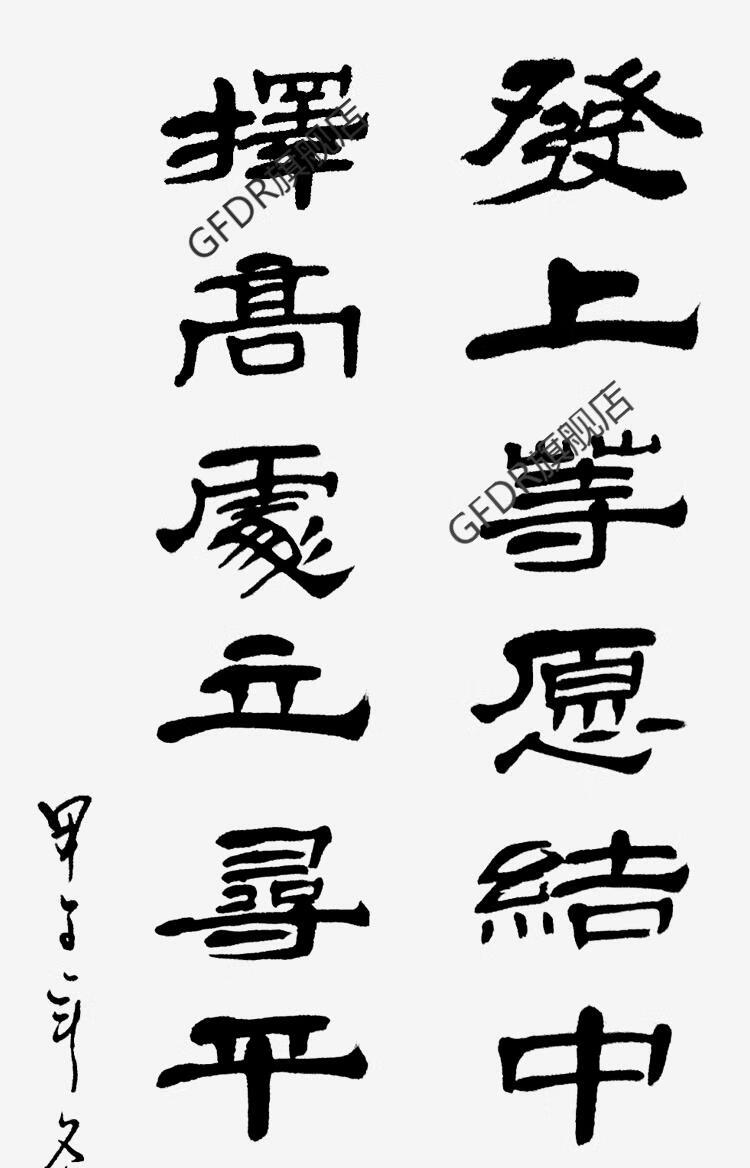 發上等愿結中
擇高處立尋平
甲子年冬
GFDR旗舰店
GFDR旗舰店